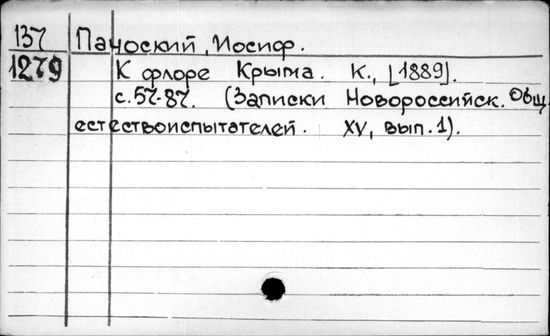 137 Пачоский, Иосиф.
1279 К флоре Крыма. К., [1889].
с.57-87. (Записки Новороссийск. Общ.
естествоиспытателей. XV, вып.1).